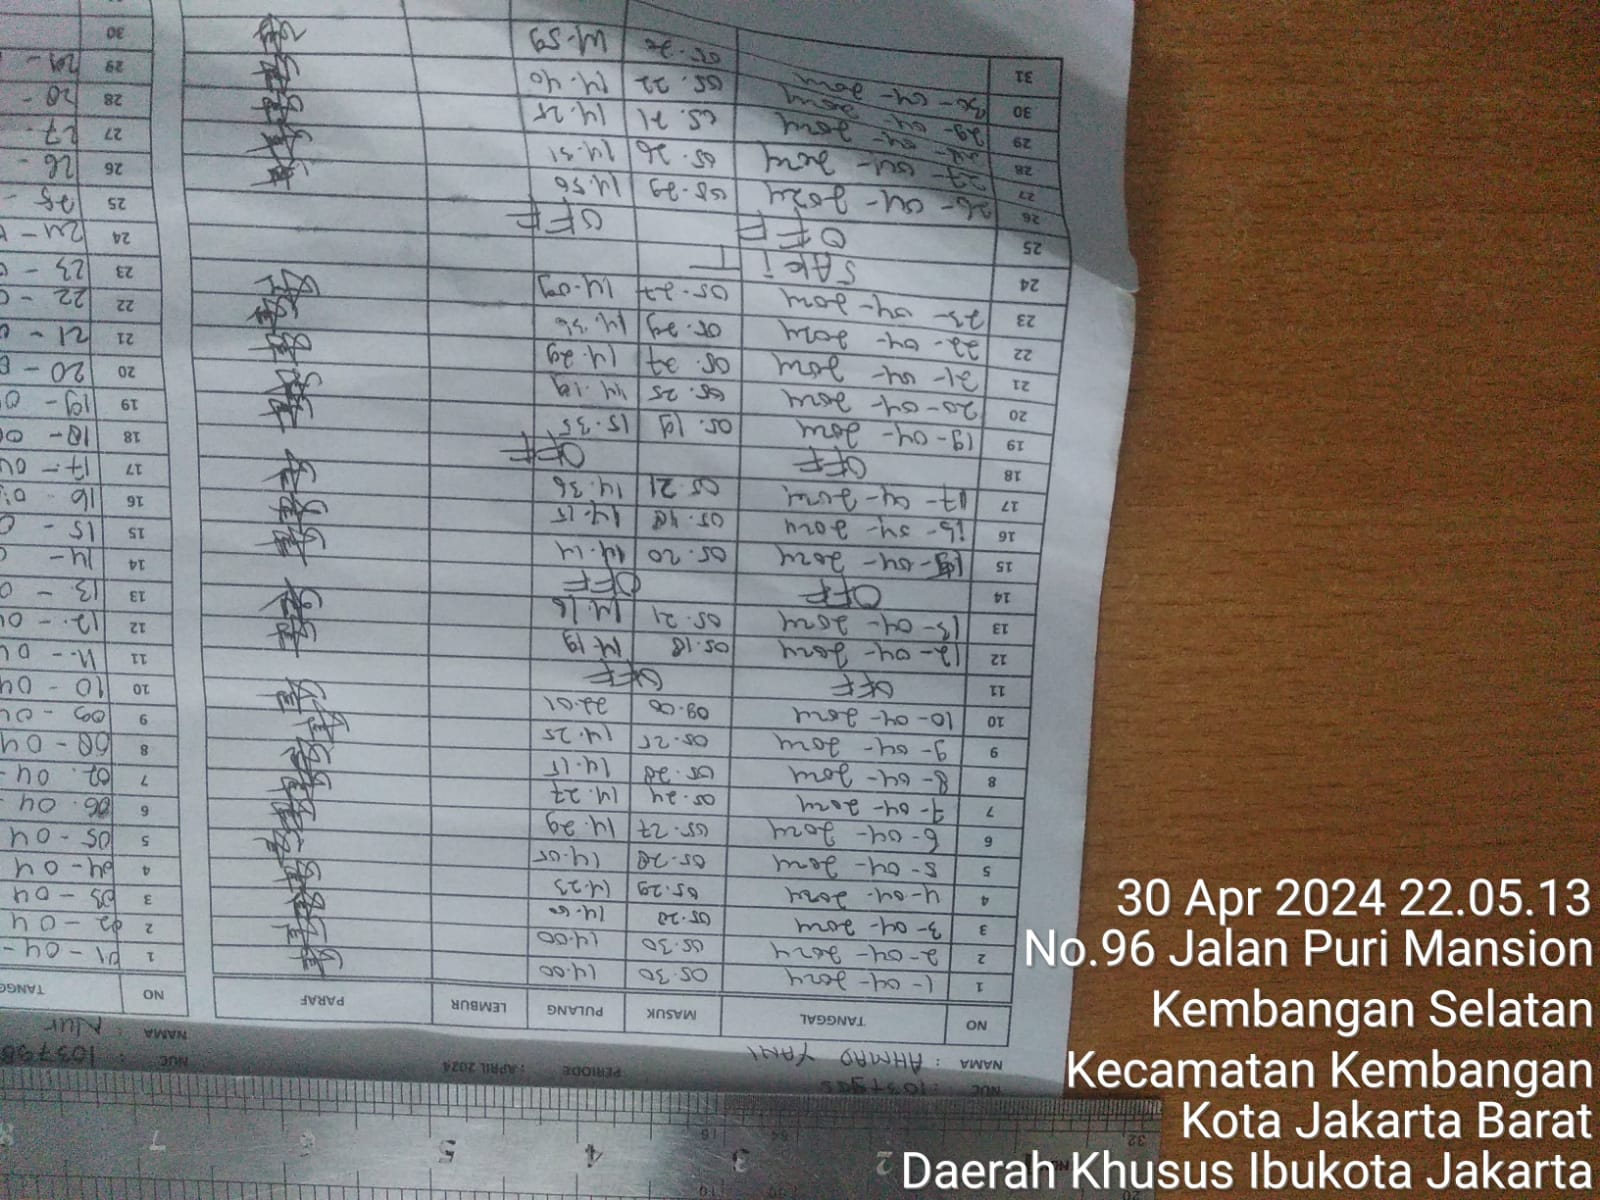 NUC : 10379
NAMA : AHMAD YANI
PERIODE : APRIL 2024
NO TANGGAL MASUK PULANG LEMBUR PARAF
1 1-04-2024 05.30 14.00
2 2-04-2024 05.30 14.00
3 3-04-2024 05.28 14.00
4 4-04-2024 05.29 14.23
5 5-04-2024 05.28 14.05
6 6-04-2024 05.27 14.29
7 7-04-2024 05.24 14.27
8 8-04-2024 05.28 14.15
9 9-04-2024 05.25 14.25
10 10-04-2024 09.00 22.01
11 OFF OFF
12 12-04-2024 05.18 14.19
13 13-04-2024 05.21 14.16
14 OFF OFF
15 15-04-2024 05.20 14.14
16 16-04-2024 05.18 14.15
17 17-04-2024 05.21 14.36
18 OFF OFF
19 19-04-2024 05.19 15.35
20 20-04-2024 05.25 14.19
21 21-04-2024 05.27 14.29
22 22-04-2024 05.29 14.36
23 23-04-2024 05.27 14.09
24 SAKIT
25 OFF OFF
26 26-04-2024 05.29 14.56
27 27-04-2024 05.26 14.31
28 04-2024 05.21 14.25
29 29-04-2024 05.22 14.40
30 30-04-2024 05.26 14.59
31
NUC : 103798
NAMA : Nur
NO TANGG
1 01-04-
2 02-04
3 03-04
4 04-04
5 05-04
6 06.04
7 04-
8 08-04
9 09-04
10 10-04
11 11-04
12 12-04
13 13-0
14 14-
15 15-0
16 16-0
17 17-04
18 18-0
19 19-0
20 20-0
21 21-0
22 22-0
23 23-0
24 24-0
25 25-
26 26-
27 27-
28 28-
29 29-
30
3 4 5 6 7
30 Apr 2024 22.05.13
No.96 Jalan Puri Mansion
Kembangan Selatan
Kecamatan Kembangan
Kota Jakarta Barat
Daerah Khusus Ibukota Jakarta